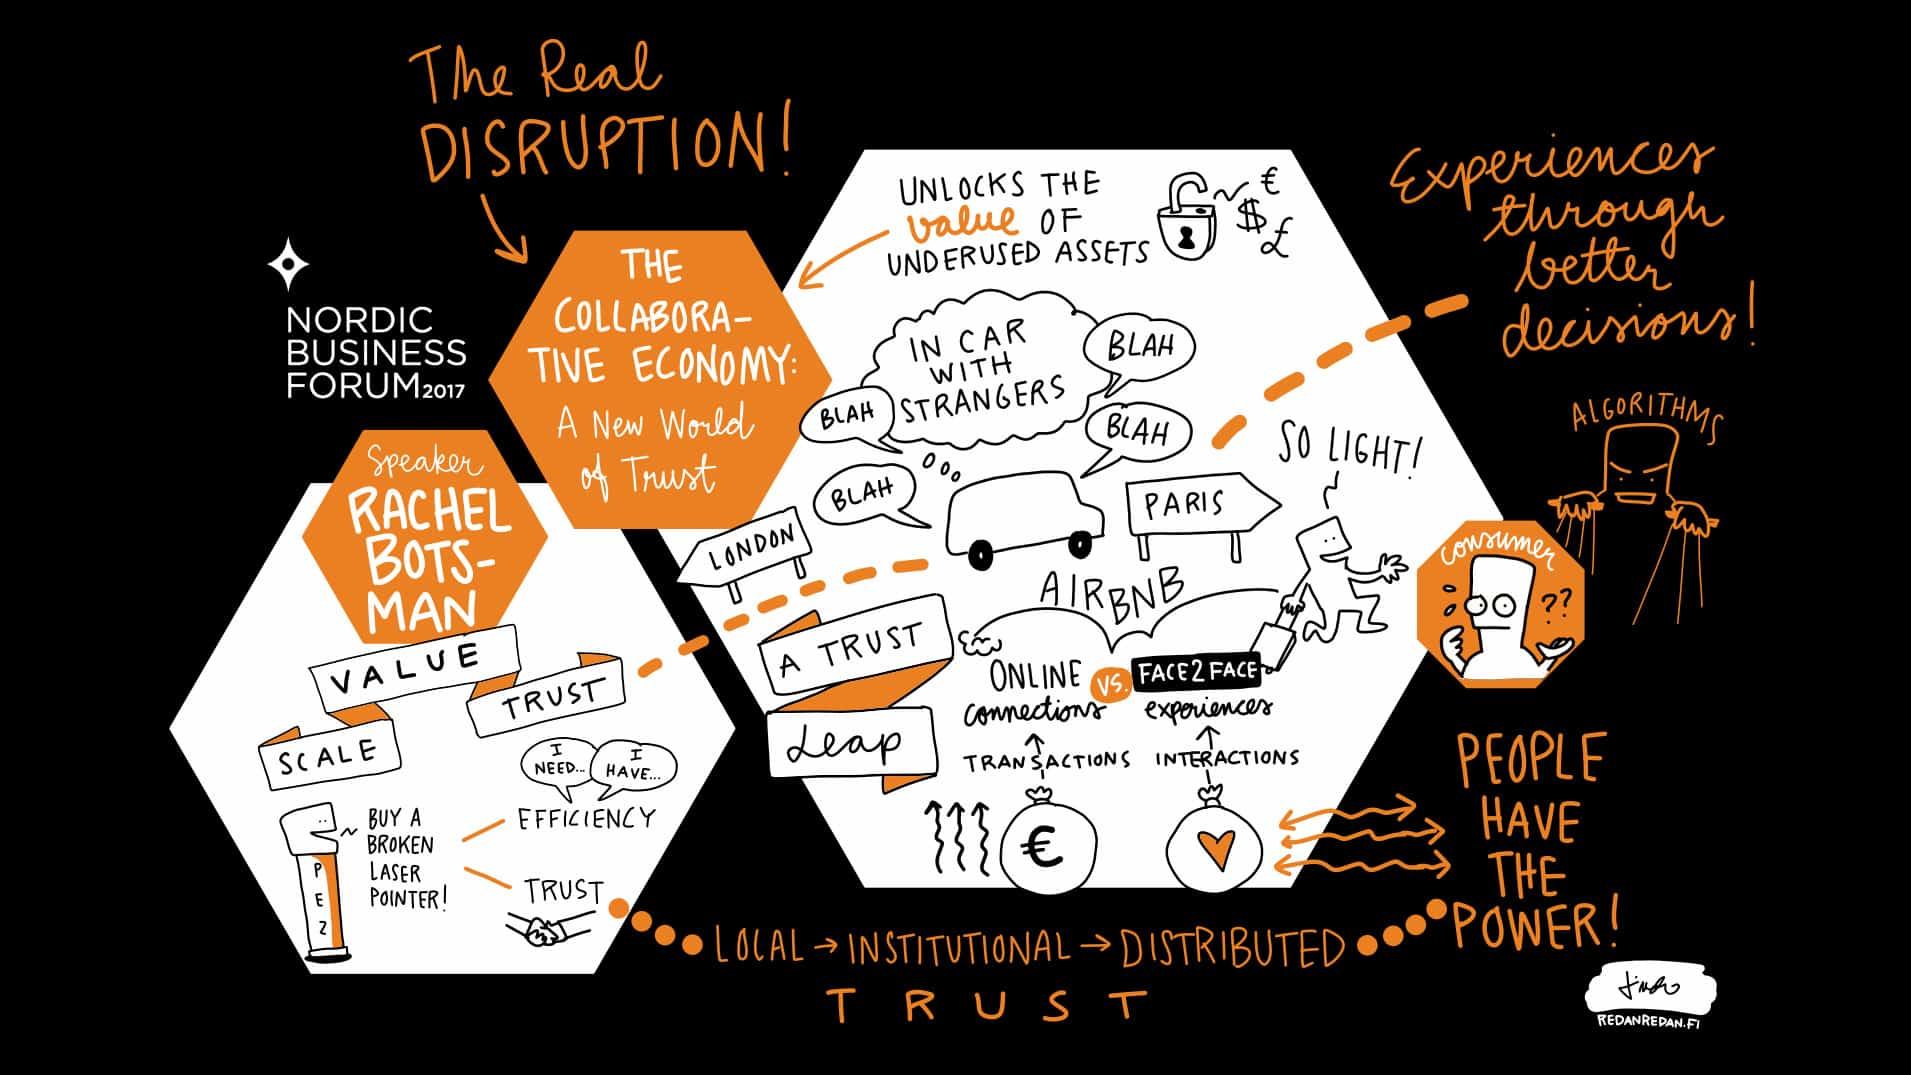 The Real
DISRUPTION!
NORDIC
BUSINESS
FORUM 2017
THE
COLLABORA-
TIVE ECONOMY:
A New World
of Trust
Speaker
RACHEL
BOTS-
MAN
VALUE
TRUST
SCALE
I
NEED...
I
HAVE...
EFFICIENCY
BUY A
BROKEN
LASER
POINTER!
PEZ
TRUST
UNLOCKS THE
value OF
UNDERUSED ASSETS
€
$
£
IN CAR
WITH
STRANGERS
BLAH
BLAH
BLAH
BLAH
LONDON
PARIS
SO LIGHT!
A TRUST
Leap
AIRBNB
ONLINE
connections
VS.
FACE2FACE
experiences
TRANSACTIONS
INTERACTIONS
€
Experiences
through
better
decisions!
ALGORITHMS
consumer
??
PEOPLE
HAVE
THE
POWER!
LOCAL → INSTITUTIONAL → DISTRIBUTED
TRUST
REDANREDAN.FI